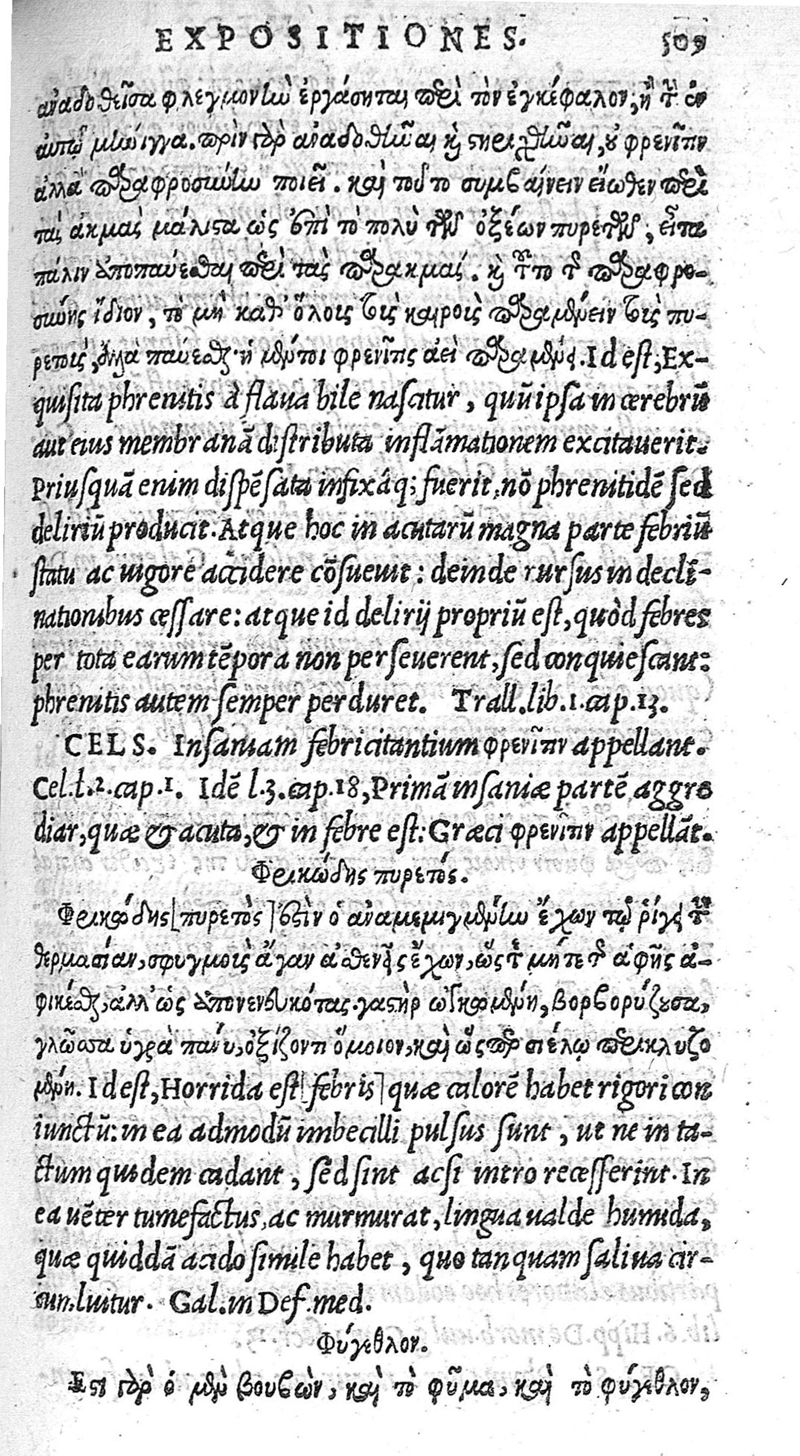 EXPOSITIONES. 509
ἀναδοθεῖσα φλεγμονὴν ἐργάσηται περὶ τὸν ἐγκέφαλον, ἢ τὴν ἐν
αὐτῷ μήνιγγα. πρὶν γὰρ ἀναδοθῆναι καὶ στηριχθῆναι, οὐ φρενῖτιν
ἀλλὰ παραφροσύνην ποιεῖ. καὶ τοῦτο συμβαίνειν εἴωθεν περὶ
τὰς ἀκμὰς μάλιστα ὡς ἐπὶ τὸ πολὺ τῶν ὀξέων πυρετῶν, εἶτα
πάλιν ἀποπαύεσθαι περὶ τὰς παρακμάς. καὶ τοῦτο τῆς παραφρο-
σύνης ἴδιον, τὸ μὴ καθ' ὅλοις τοῖς καιροῖς παραμένειν τοῖς πυ-
ρετοῖς, ἀλλὰ παύεσθαι· ἡ μέντοι φρενῖτις ἀεὶ παραμένει. Id est, Ex-
quisita phrenitis à flaua bile nascitur, quũ ipsa in cerebrũ
aut eius membranã distributa inflãmationem excitauerit.
Priusquã enim dispẽsata infixáq; fuerit, nõ phrenitidẽ sed
deliriũ producit. Atque hoc in acutarũ magna parte febriũ
statu ac uigore accidere cõsueuit: deinde rursus in decli-
nationibus cessare: atque id delirij propriũ est, quòd febres
per tota earum tẽpora non perseuerent, sed conquiescant:
phrenitis autem semper perduret. Trall. lib. 1. cap. 13.
CELS. Insaniam febricitantium φρενῖτιν appellant.
Cel. l. 2. cap. 1. Idẽ l. 3. cap. 18, Primã insaniæ partẽ aggre
diar, quæ & acuta, & in febre est: Græci φρενῖτιν appellãt.
Φρικώδης πυρετός.
Φρικώδης [πυρετὸς] ἐστὶν ὁ ἀναμεμιγμένην ἔχων τῷ ῥίγει τὴν
θερμασίαν, σφυγμοὺς ἄγαν ἀσθενεῖς ἔχων, ὥστε μήτε τῆς ἁφῆς ἀ-
φικέσθαι, ἀλλ' ὡς ἀπονενευκότας. γαστὴρ ᾠδηκυῖα, βορβορύζουσα,
γλῶσσα ὑγρὰ πάνυ, ὀξίζοντι ὅμοιον, καὶ ὥσπερ σιέλῳ περικλυζο
μένη. Id est, Horrida est [febris] quæ calorẽ habet rigori con
iunctũ: in ea admodũ imbecilli pulsus sunt, ut ne in ta-
ctum quidem cadant, sed sint acsi intro recesserint. In
ea uẽter tumefactus, ac murmurat, lingua ualde humida,
quæ quiddã acido simile habet, quo tanquam saliua cir-
cumluitur. Gal. in Def. med.
Φύγεθλον.
Ἔστι γὰρ ὁ μὲν βουβὼν, καὶ τὸ φῦμα, καὶ τὸ φύγεθλον,